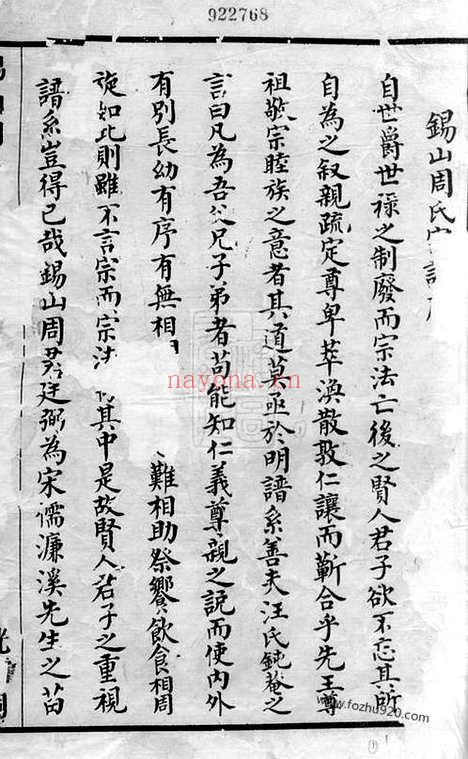 922768
錫山周氏
自世爵世祿之制廢而宗法亡後之賢人君子欲不忘其所
自為之敘親疏定尊卑萃渙散敦仁讓而蘄合乎先王尊
祖敬宗睦族之意者其道莫亟於明譜系善夫汪氏鈍菴之
言曰凡為吾父兄子弟者苟能知仁義尊親之說而使內外
有別長幼有序有無相 難相助祭饗飲食相周
旋如此則雖不言宗而宗法 其中是故賢人君子之重視
譜系豈得已哉錫山周君廷弼為宋儒濂溪先生之苗
nayona.cn
www.fozhu920.com